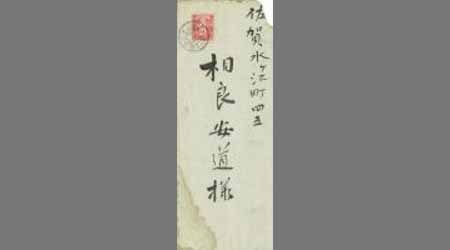 佐賀水ヶ江町四五
相良安道様